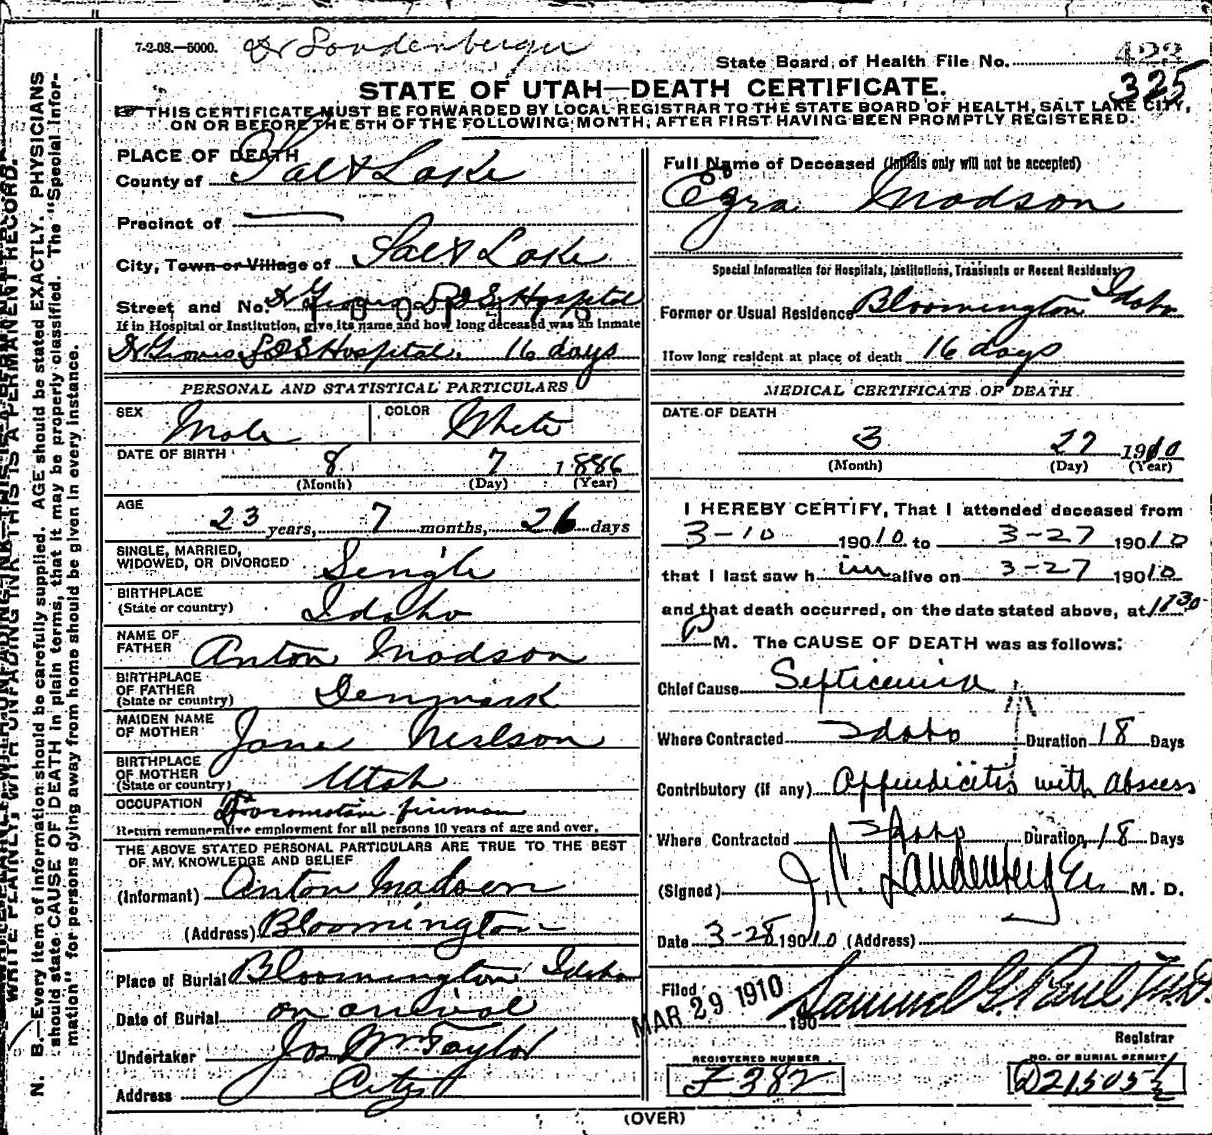 7-2-08.—5000. Dr Landenberger
State Board of Health File No. 423
325
STATE OF UTAH—DEATH CERTIFICATE.
THIS CERTIFICATE MUST BE FORWARDED BY LOCAL REGISTRAR TO THE STATE BOARD OF HEALTH, SALT LAKE CITY,
ON OR BEFORE THE 5TH OF THE FOLLOWING MONTH, AFTER FIRST HAVING BEEN PROMPTLY REGISTERED.
WRITE PLAINLY, WITH UNFADING INK—THIS IS A PERMANENT RECORD.
N. B.—Every item of information should be carefully supplied. AGE should be stated EXACTLY. PHYSICIANS
should state CAUSE OF DEATH in plain terms, that it may be properly classified. The "Special Infor-
mation" for persons dying away from home should be given in every instance.
PLACE OF DEATH
County of Salt Lake
Precinct of
City, Town or Village of Salt Lake
Street and No. Dr Groves LDS Hospital
If in Hospital or Institution, give its name and how long deceased was an inmate
Dr Groves LDS Hospital. 16 days
PERSONAL AND STATISTICAL PARTICULARS
SEX Male COLOR White
DATE OF BIRTH 8 7 1886
(Month) (Day) (Year)
AGE 23 years, 7 months, 26 days
SINGLE, MARRIED,
WIDOWED, OR DIVORCED Single
BIRTHPLACE
(State or country) Idaho
NAME OF
FATHER Anton Madson
BIRTHPLACE
OF FATHER
(State or country) Denmark
MAIDEN NAME
OF MOTHER Jane Neilson
BIRTHPLACE
OF MOTHER
(State or country) Utah
OCCUPATION Locomotive fireman
Return remunerative employment for all persons 10 years of age and over.
THE ABOVE STATED PERSONAL PARTICULARS ARE TRUE TO THE BEST
OF MY KNOWLEDGE AND BELIEF
(Informant) Anton Madsen
(Address) Bloomington
Place of Burial Bloomington Idaho
Date of Burial on arrival
Undertaker Jos Wm Taylor
Address City
Full Name of Deceased (Initials only will not be accepted)
Ezra Madson
Special Information for Hospitals, Institutions, Transients or Recent Residents.
Former or Usual Residence Bloomington Idaho
How long resident at place of death 16 days
MEDICAL CERTIFICATE OF DEATH
DATE OF DEATH
3 27 1910
(Month) (Day) (Year)
I HEREBY CERTIFY, That I attended deceased from
3-10 190 10 to 3-27 190 10
that I last saw h im alive on 3-27 190 10
and that death occurred, on the date stated above, at 1130
P M. The CAUSE OF DEATH was as follows:
Chief Cause Septicemia
Where Contracted Idaho Duration 18 Days
Contributory (if any) Appendicitis with Abscess
Where Contracted Idaho Duration 18 Days
(Signed) J. C. Landenberger M. D.
Date 3-28 190 10 (Address)
Filed MAR 29 1910 190 Samuel G. Paul M.D.
Registrar
REGISTERED NUMBER
F382
NO. OF BURIAL PERMIT
D21505½
(OVER)